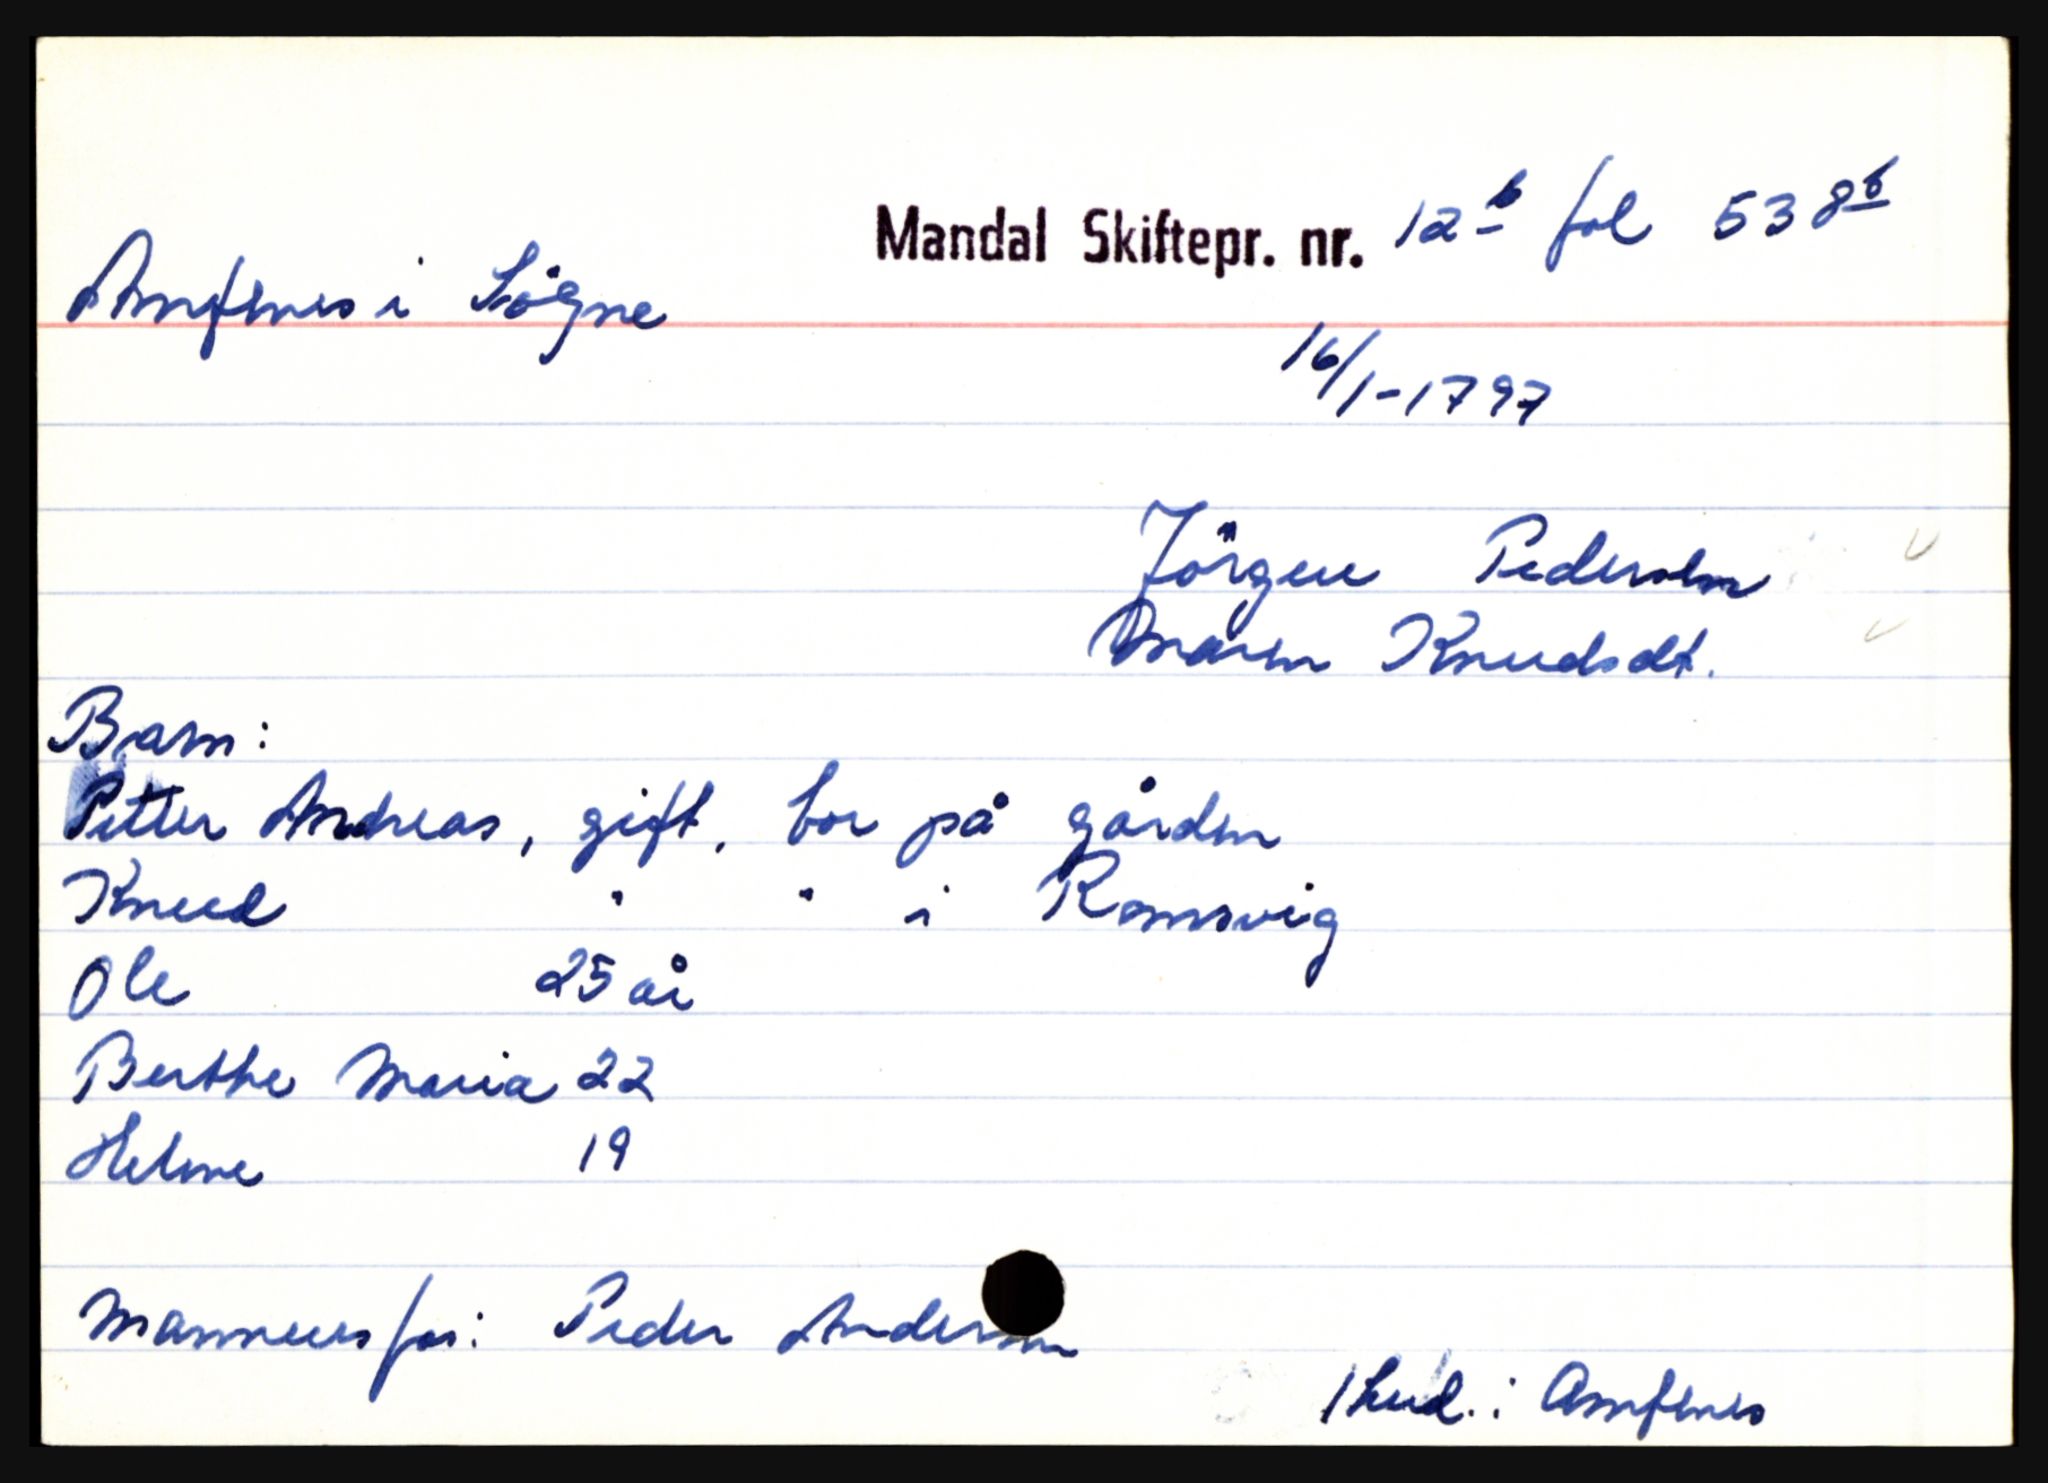 Mandal Skiftepr. nr. 12 b fol 538 b
Amfenes i Søgne
16/1-1797
Jörgen Pedersen
Maren Knudsdt.
Barn:
Petter Andreas, gift, bor på gården
Knud " " i Romsvig
Ole 25 år
Berthe Maria 22
Helene 19
Mannens far: Peder Andersen
1 hud. i Amfenes